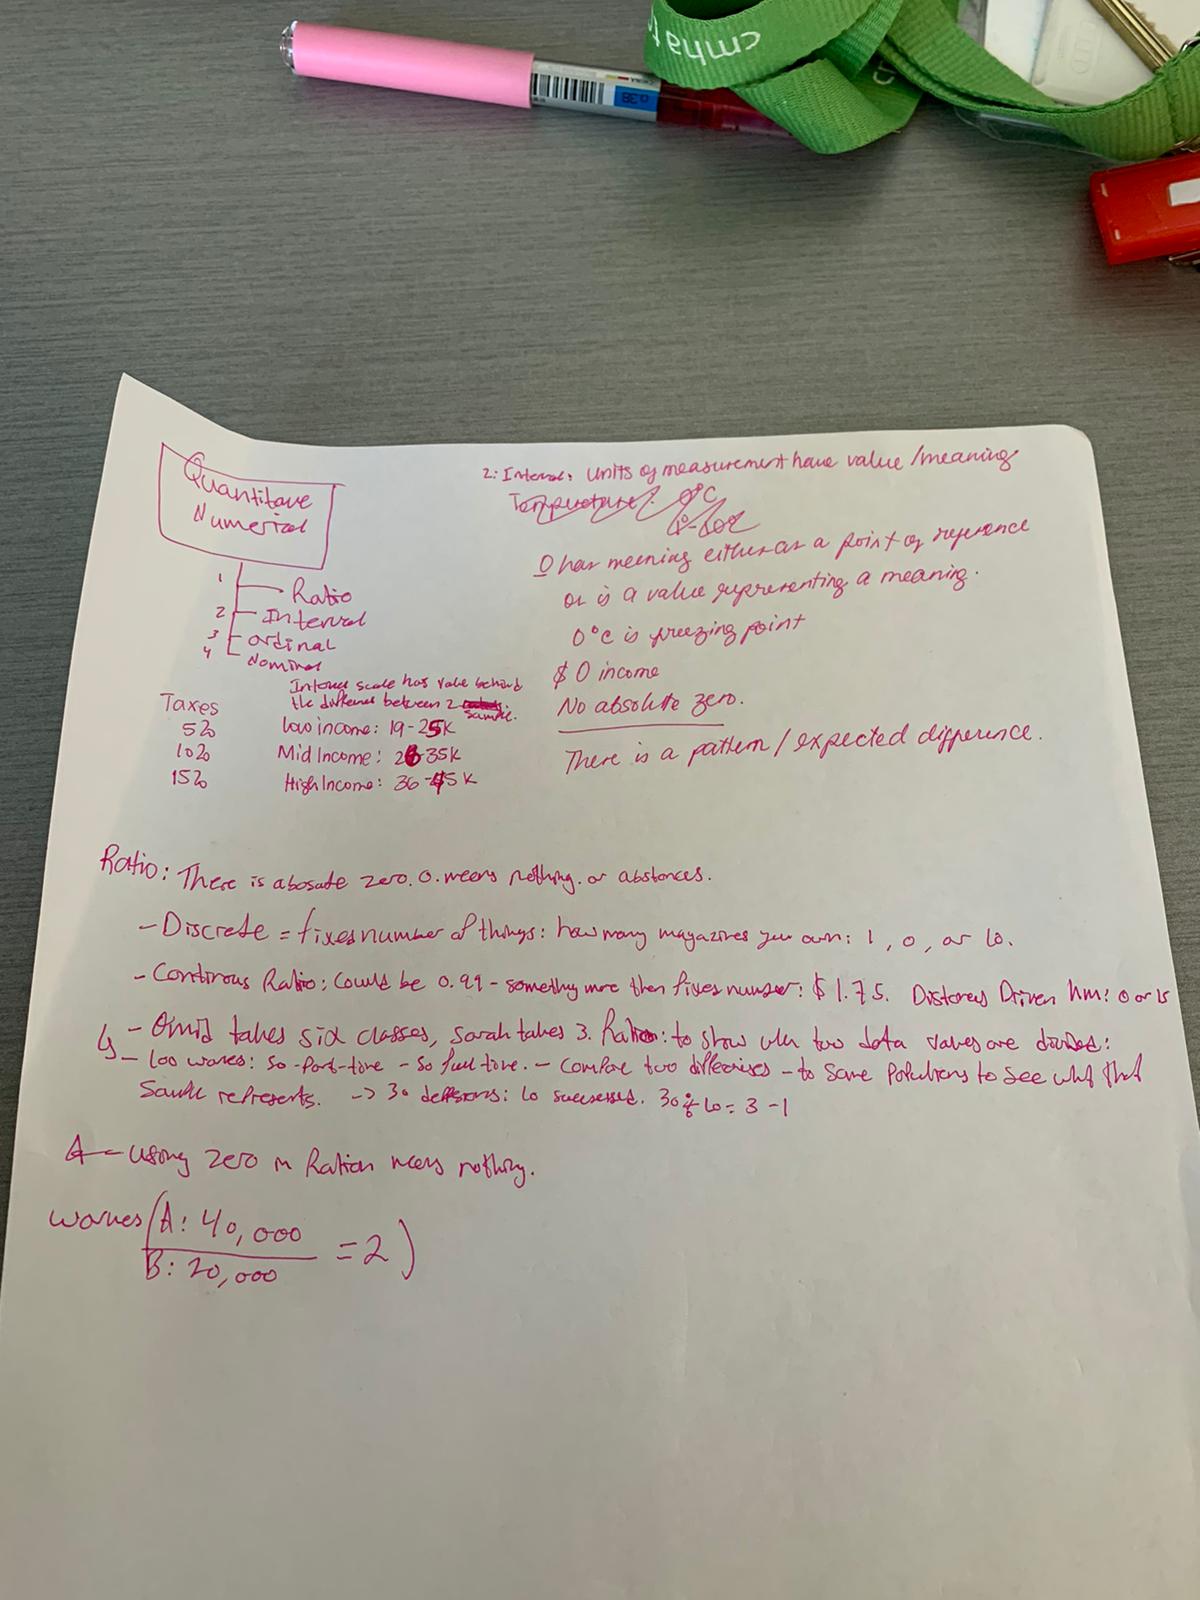 cmha to
0.38
Quantitave
Numerical
1 Ratio
2 Interval
3 ordinal
4 Nominal
2: Interval: Units of measurement have value/meaning
0°C
0 has meaning either as a point of reference
or is a value representing a meaning.
0°c is freezing point
$0 income
No absolute zero.
There is a pattern / expected difference.
Interval scale has value behind
the difference between 2 sample.
Taxes
5% Low income: 19-25K
10% Mid Income: 26-35K
15% High Income: 36-45K
Ratio: There is abosute zero. 0. means nothing. or abstances.
- Discrete = fixes number of things: how many magazines you own: 1, 0, or 10.
- Continous Ratio: Could be 0.99 - something more then fixes number: $1.75. Driven km: 0 or 15
- Omid takes six classes, Sarah takes 3. Ratio: to show when two data values are divided:
- 100 : 50-part-time - 50 full time. - Compare two - to same to see what that
represents. -> 30 : 10 30÷10= 3-1
A- using zero in Ration means nothing.
(A: 40,000
B: 20,000 = 2)